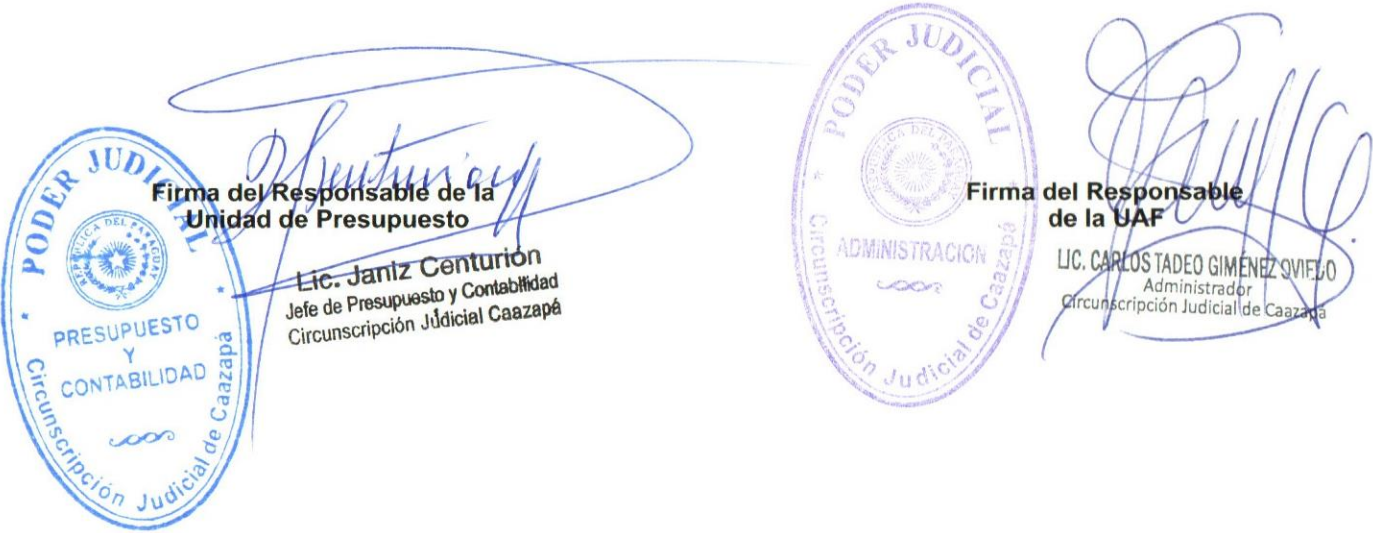 PODER JUDICIAL
REPUBLICA DEL PARAGUAY
PRESUPUESTO
Y
CONTABILIDAD
Circunscripción Judicial de Caazapá
Firma del Responsable de la
Unidad de Presupuesto
Lic. Janiz Centurión
Jefe de Presupuesto y Contabilidad
Circunscripción Judicial Caazapá
PODER JUDICIAL
REPUBLICA DEL PARAGUAY
ADMINISTRACION
Circunscripción Judicial de Caazapá
Firma del Responsable
de la UAF
LIC. CARLOS TADEO GIMÉNEZ OVIEDO
Administrador
Circunscripción Judicial de Caazapá